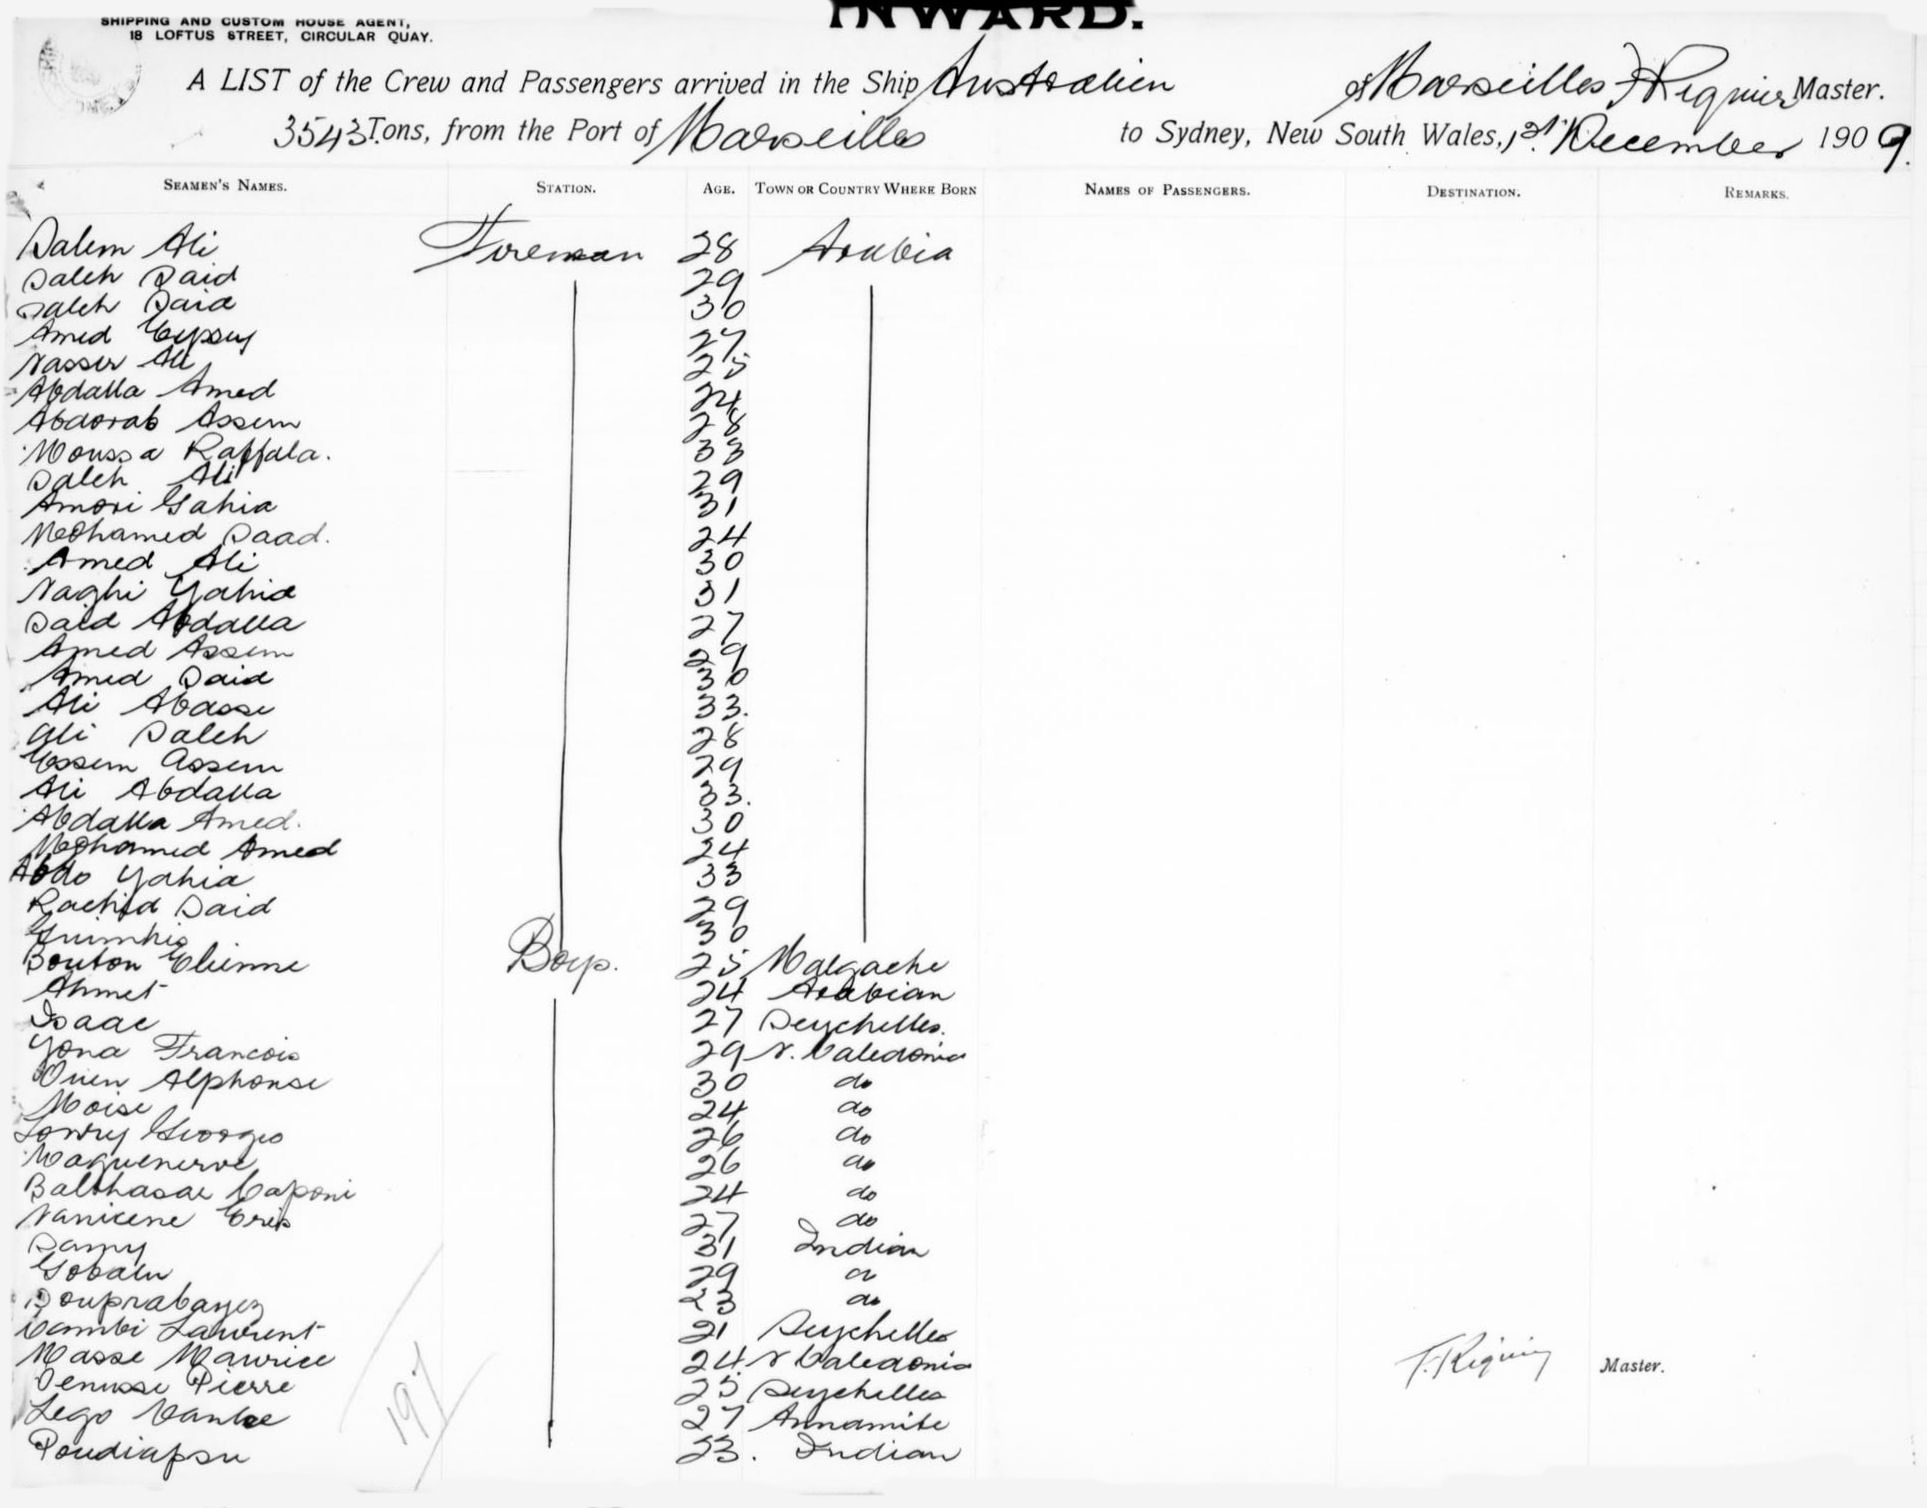 SHIPPING AND CUSTOM HOUSE AGENT,
18 LOFTUS STREET, CIRCULAR QUAY.
INWARD.
A LIST of the Crew and Passengers arrived in the Ship Australien of Marseilles F Riquier Master.
3543 Tons, from the Port of Marseilles to Sydney, New South Wales, 1st December 1909.
SEAMEN'S NAMES. STATION. AGE. TOWN OR COUNTRY WHERE BORN NAMES OF PASSENGERS. DESTINATION. REMARKS.
Salem Ali Fireman 28 Arabia
Saleh Said 29
Saleh Said 30
Amed 27
Nasser Ali 25
Abdalla Amed 24
Abdorab Assem 28
Moussa Raffala. 33
Saleh Ali 29
Amori Gahia 31
Mohamed Saad. 24
Amed Ali 30
Naghi Yahia 31
Said Abdalla 27
Amed Assem 29
Amed Said 30
Ali Abasse 33.
Ali Saleh 28
Essem Assem 29
Ali Abdalla 33.
Abdalla Amed. 30
Mohamed Amed 24
Abdo Yahia 33
Rachid Said 29
30
Bouton Etienne Boys. 25 Malgache
Ahmet 24 Arabian
Isaac 27 Seychelles.
Yona Francois 29 N. Caledonia
Alphonse 30 do
Moise 24 do
Lowry Georges 26 do
Waguenerve 26 do
Balthasar Caponi 24 do
Vanicene Cris 27 do
Samy 31 Indian
Gobalu 29 do
Souprabayez 23 do
Cambi Laurent 21 Seychelles
Masse Maurice 24 N Caledonia
Venusse Pierre 25 Seychelles
F. Riquier Master.
Lego 27 Annamite
Poudiapsu 23. Indian
197